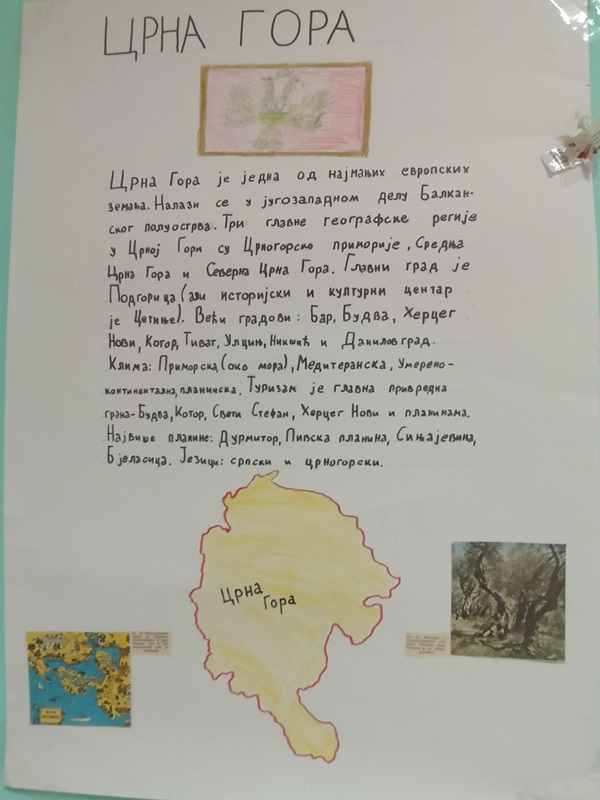 ЦРНА ГОРА
Црна Гора је једна од најмањих европских
земаља. Налази се у југозападном делу Балкан-
ског полуострва. Три главне географске регије
у Црној Гори су Црногорско приморије, Средња
Црна Гора и Северна Црна Гора. Главни град је
Подгорица (али историјски и културни центар
је Цетиње). Већи градови: Бар, Будва, Херцег
Нови, Котор, Тиват, Улцињ, Никшић и Даниловград.
Клима: Приморска (око мора), Медитеранска, Умерено-
континентална, планинска. Туризам је главна привредна
грана-Будва, Котор, Свети Стефан, Херцег Нови и планинама.
Највише планине: Дурмитор, Пивска планина, Сињајевина,
Бјеласица. Језици: српски и црногорски.
Црна
Гора